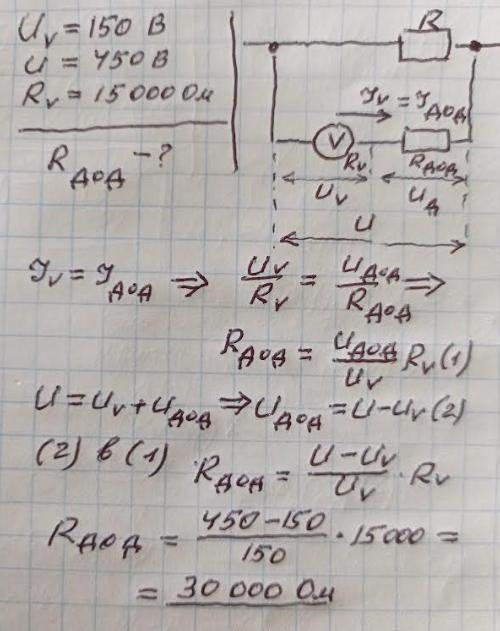 U_v = 150 В
U = 450 В
R_v = 15000 Ом
R_дод - ?
R
I_v = I_дод
V
R_v
R_дод
U_v
U_д
U
I_v = I_дод ⇒ U_v/R_v = U_дод/R_дод ⇒
R_дод = U_дод/U_v R_v (1)
U = U_v + U_дод ⇒ U_дод = U - U_v (2)
(2) в (1) R_дод = (U - U_v)/U_v · R_v
R_дод = (450 - 150)/150 · 15000 =
= 30 000 Ом